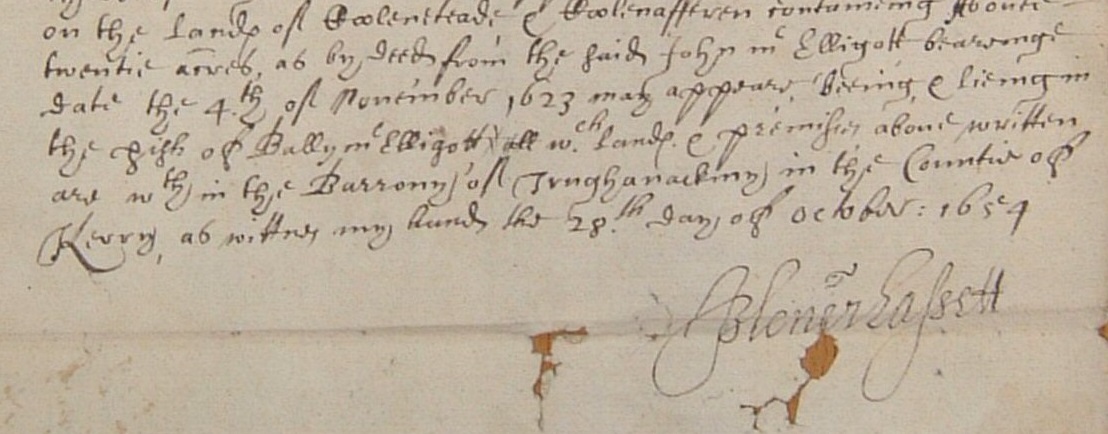 on the Landς of Coolensteade & Coolenafferen contameing aboute
twentie acres, as by deed from the said John mc Elligott bearinge
date the 4.th of November 1623 may appeare, beeing & lieing in
the pish of Ballymc Elligott, all wch. Landς & premisses above written
are wth in the Barrony of Trughanackmy in the Countie of
Kerry, as wittnes my hand the 28.th day of October: 1654
Blenerhassett